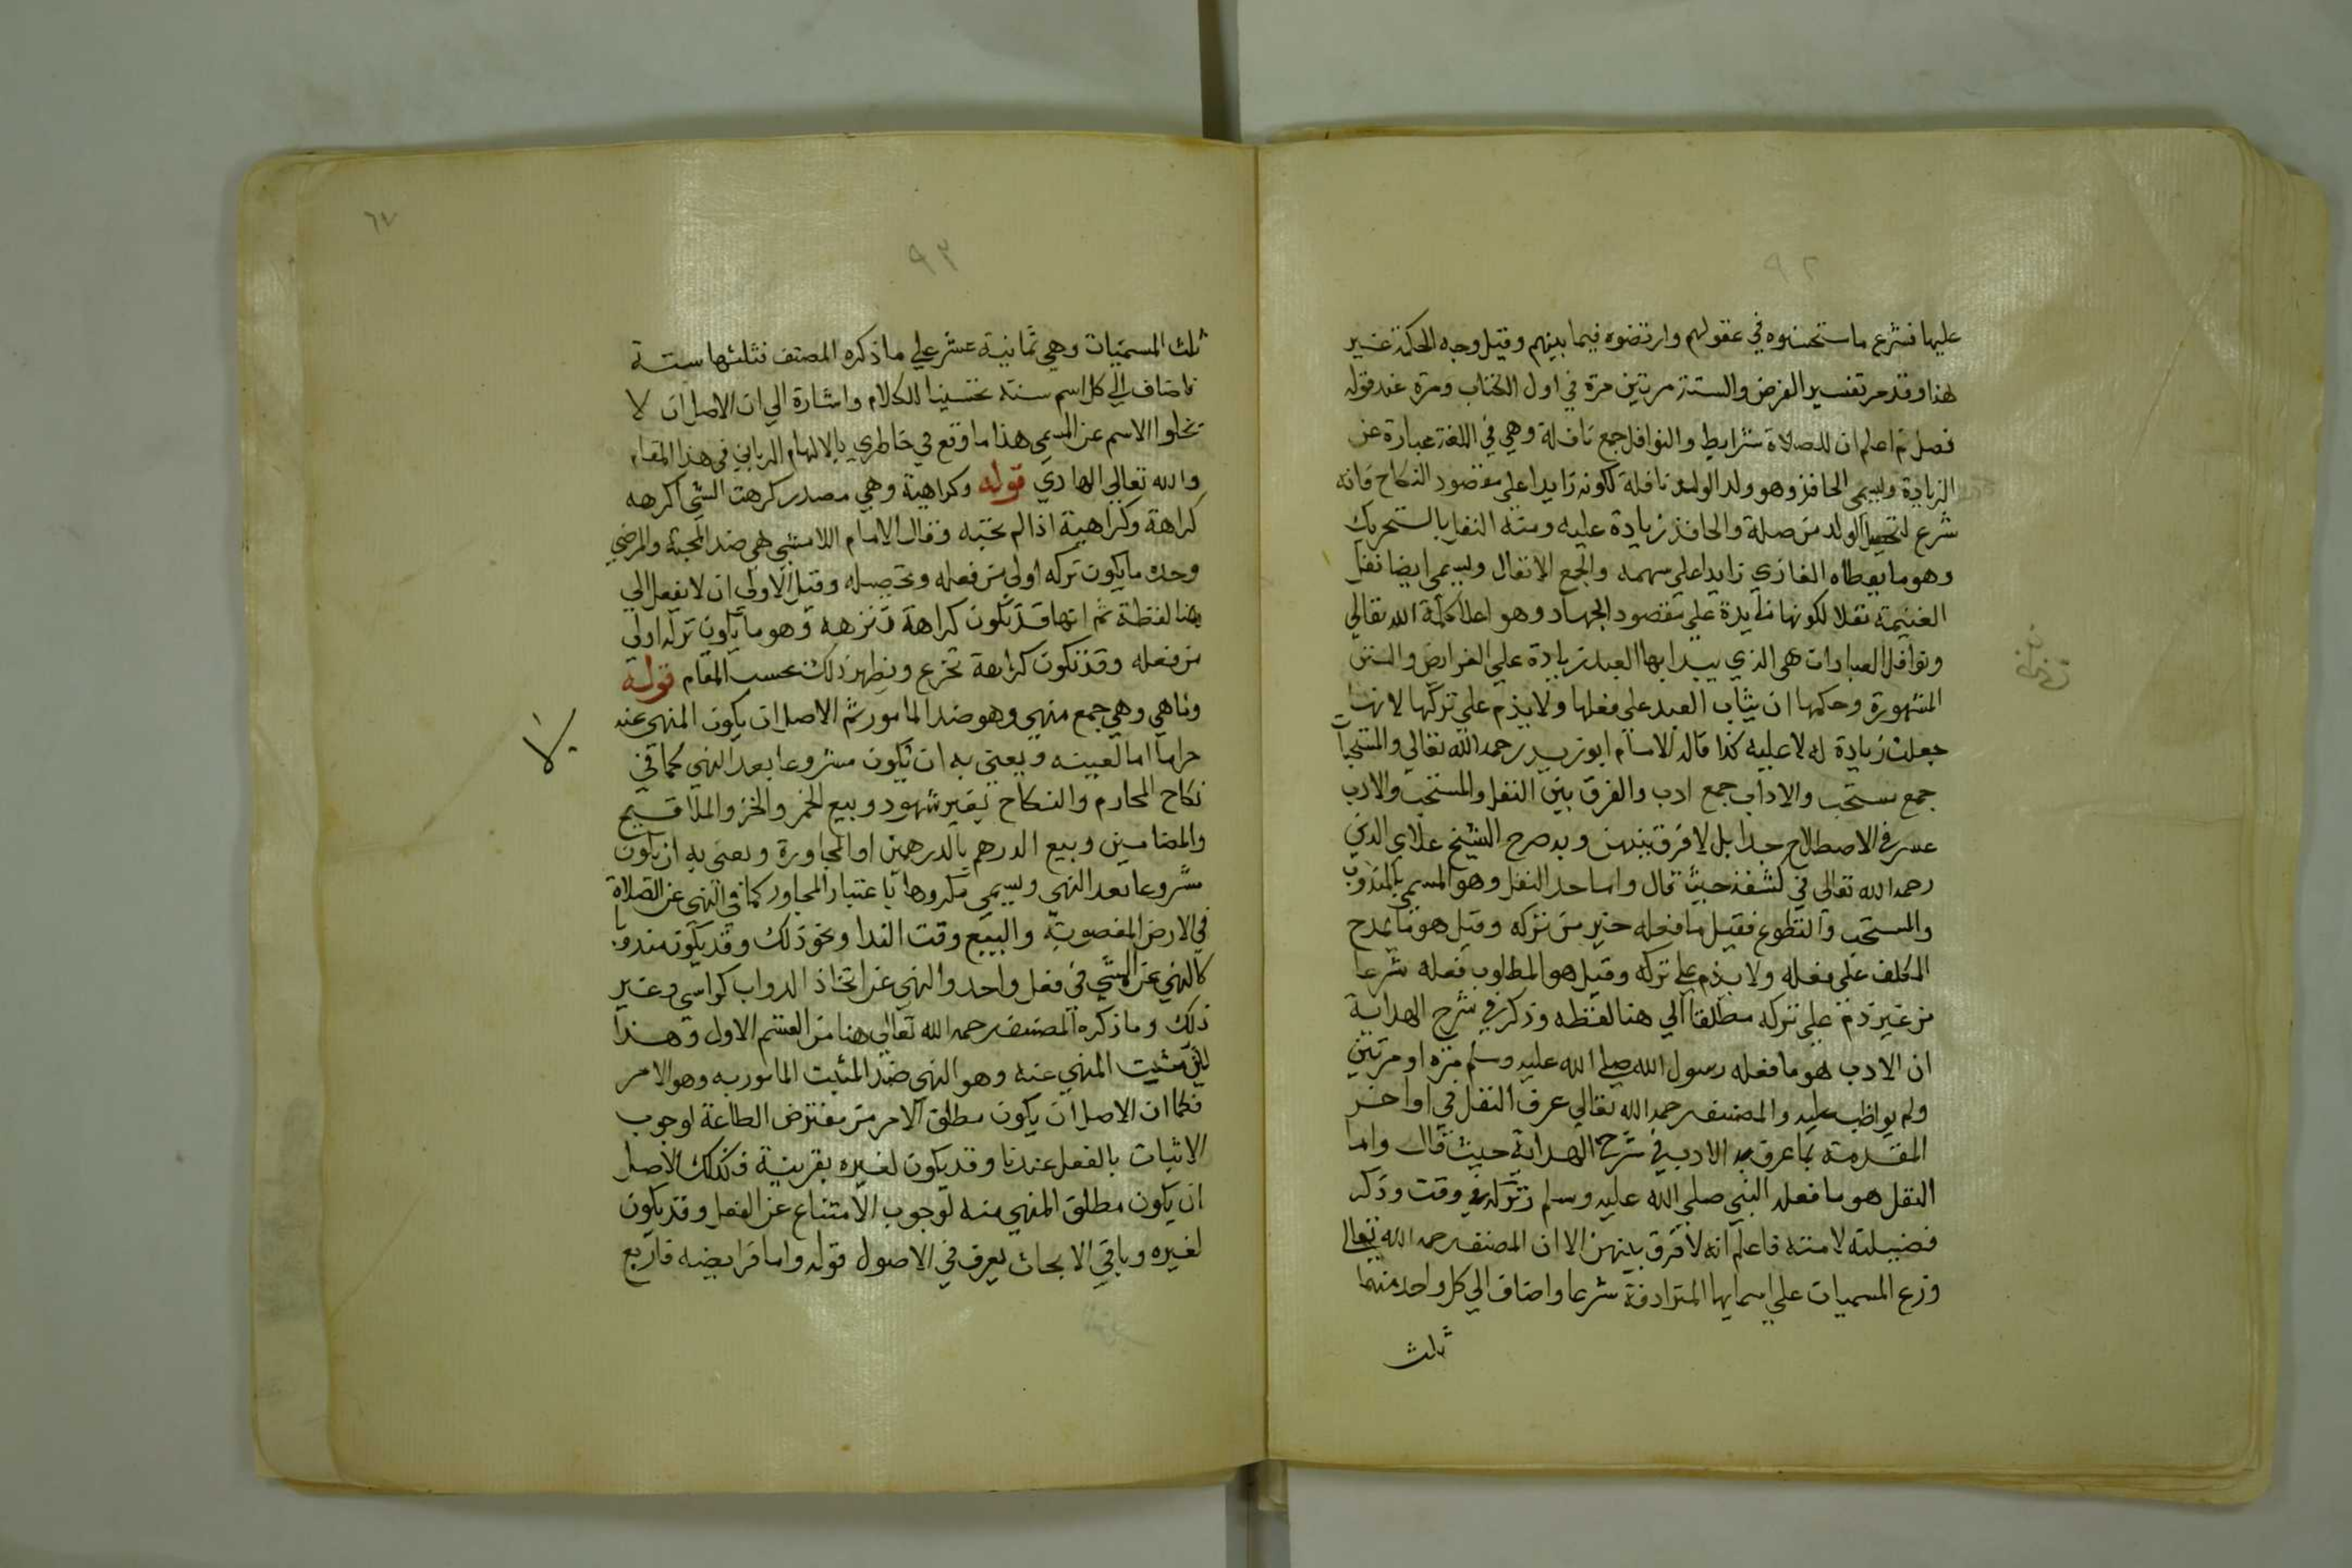 ٩٢
عليها فشرع ما استحسنوه في عقولهم وارتضوه فيما بينهم وقيل وجه الحكمة غير
هذا وقد مر تفسير الفرض والسنة مرتين مرة في اول الكتاب ومرة عند قوله
فصل ثم اعلم ان للصلاة شرايط والنوافل جمع نافلة وهي في اللغة عبارة عن
الزيادة ويسمى الحافز وهو ولد الولد نافلة لكونه زايدا على مقصود النكاح فانه
شرع لتحصيل الولد من صلبه والحافذ زيادة عليه ومنه النفل بالتحريك
وهو ما يعطاه الغازي زايدا على سهمه والجمع الانفال ويسمى ايضا نفل
الغنيمة نفلا لكونها زايدة على مقصود الجهاد وهو اعلا كلمة الله تعالي
ونوافل العبادات هي الذي يبيدا بها العبد زيادة علي الفرايض والسنن
المشهورة وحكمها ان يثاب العبد على فعلها ولا يذم علي تركها لانها
جعلت زيادة له لا عليه كذا قال الامام ابو زيد رحمه الله تعالي والمستحبات
جمع مستحب والاداب جمع ادب والفرق بين النفل والمستحب والادب
عسر في الاصطلاح جدا بل لا فرق بينهن وبه صرح الشيخ علاي الدين
رحمه الله تعالى في كشفه حيث قال واما حد النفل وهو المسمى بالمندوب
والمستحب والتطوع فقيل ما فعله خير من تركه وقيل هو ما يمدح
المكلف علي فعله ولا يذم علي تركه وقيل هو المطلوب فعله شرعا
من غير ذم علي تركه مطلقا الي هنا لفظه وذكر في شرح الهداية
ان الادب هو ما فعله رسول الله صلي الله عليه وسلم مرة او مرتين
ولم يواظب عليه والمصنف رحمه الله تعالي عرف النفل في اواخر
المقدمة بما عرف به الادب في شرح الهداية حيث قال واما
النفل هو ما فعله النبي صلي الله عليه وسلم وتركه في وقت وذكر
فضيلته لامته فاعلم انه لا فرق بينهن الا ان المصنف رحمه الله تعالي
وزع المسميات علي اسمايها المترادفة شرعا واضاف الي كل واحد منها
ثلث
٦٧
٩٣
ثلث المسميات وهي ثمانية عشر علي ما ذكره المصنف فثلثها ستة
فاضاف الي كل اسم ستة تحسينا للكلام واشارة الي ان الاصل ان لا
تخلوا الاسم عن المسمى هذا ما وقع في خاطري بالالهام الرباني في هذا المقام
والله تعالي الهادي قوله وكراهية وهي مصدر كرهت الشي اكرهه
كراهة وكراهية اذا لم تحبه وقال الامام اللامشي هي ضد المحبة والمرضي
وحده ما يكون تركه اولي من فعله وتحصيله وقيل الاولي ان لا يفعل الي
هنا لفظه ثم انها قد تكون كراهة تنزهه وهو ما يكون تركه اولي
من فعله وقد تكون كراهة تحرع ويظهر ذلك بحسب المقام قوله
وناهي وهي جمع منهي وهو ضد المامور ثم الاصل ان يكون المنهي عنه
حراما اما لعينه ويعني به ان يكون مشروعا بعد النهي كما في
نكاح المحارم والنكاح بغير شهود وبيع الخمر والخز والملاقيح
والمضامين وبيع الدرهم بالدرهمين او المجاورة ويعني به ان يكون
مشروعا بعد النهي ويسمي مكروها باعتبار المجاور كما في النهي عن الصلاة
في الارض المغصوبة والبيع وقت الندا ونحو ذلك وقد يكون مندوبا
كالنهي عن المشي في نعل واحد والنهي عن اتخاذ الدواب كراسي وغير
ذلك وما ذكره المصنف رحمه الله تعالي هنا من القسم الاول وهذا
لان مثبت المنهي عنه وهو النهي ضد المثبت المامور به وهو الامر
فكما ان الاصل ان يكون مطلق الامر من مفترض الطاعة لوجوب
الاثبات بالفعل عندنا وقد يكون لغيره بقرينة فكذلك الاصل
ان يكون مطلق المنهي منه لوجوب الامتناع عن الفعل وقد يكون
لغيره وباقي الابحاث يعرف في الاصول قوله واما فرايضه فاربع